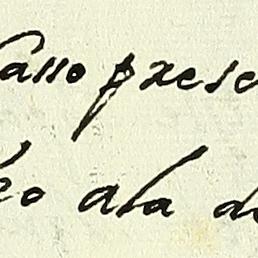 asso prese
co ala de